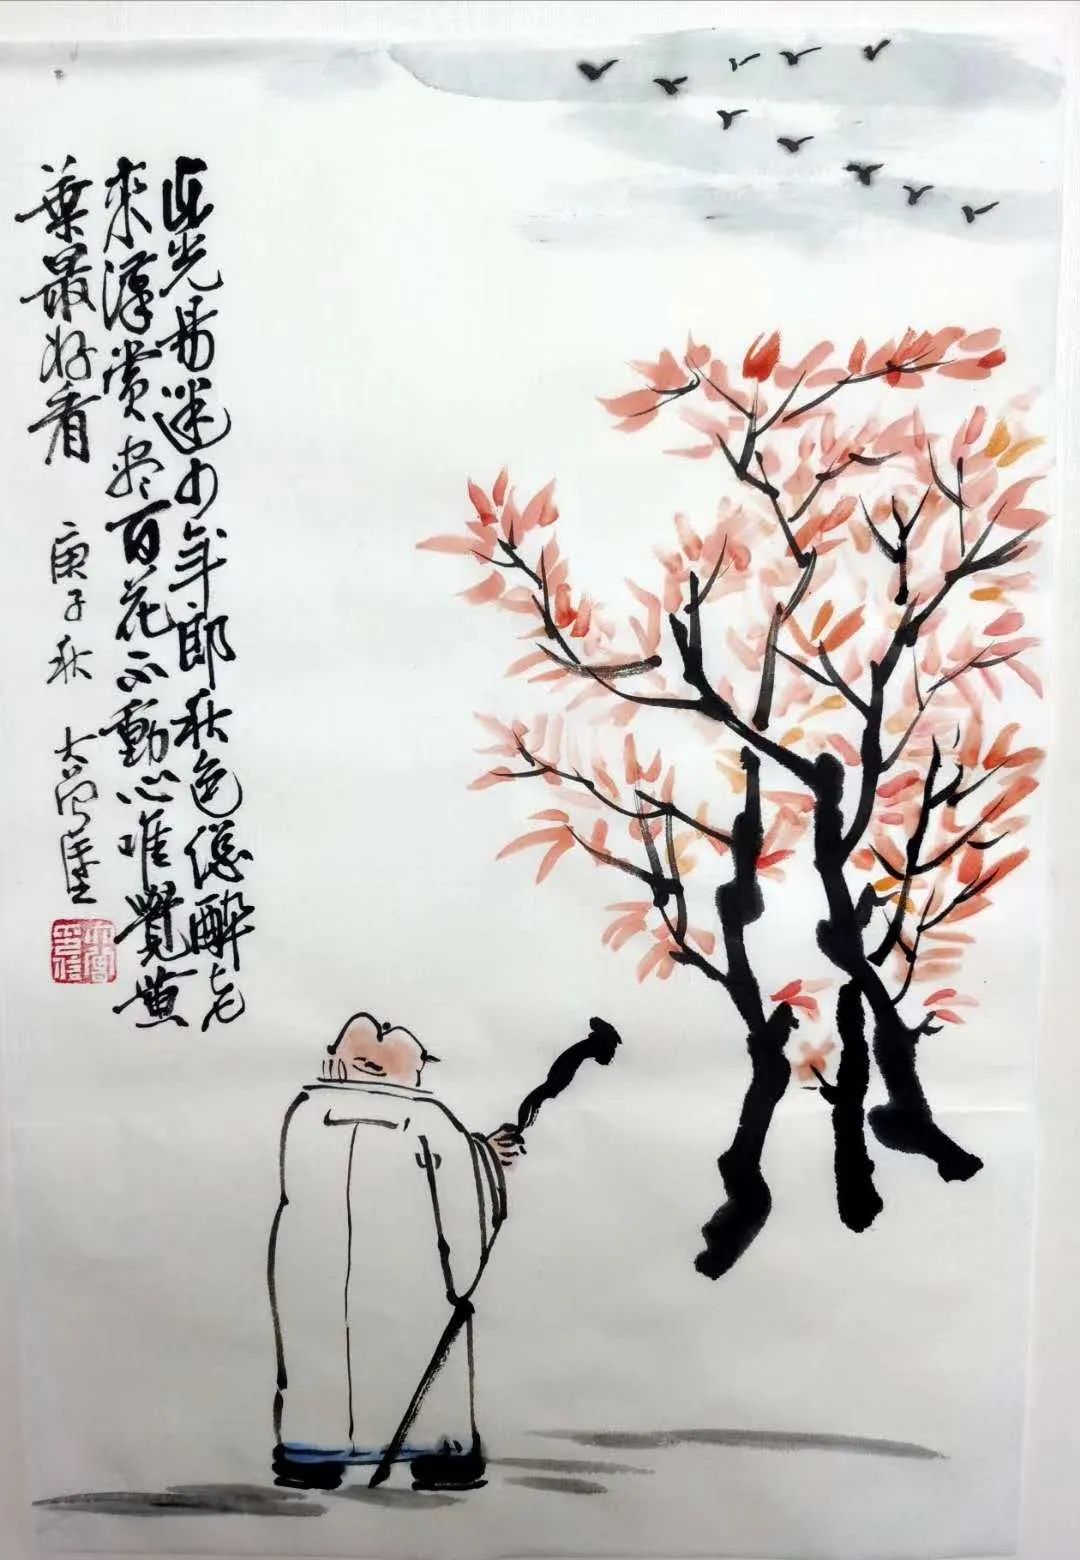 春光易迷少年郎秋色總醉老
來漢賞尽百花不動心唯覺黄
葉最好看 庚子秋 大